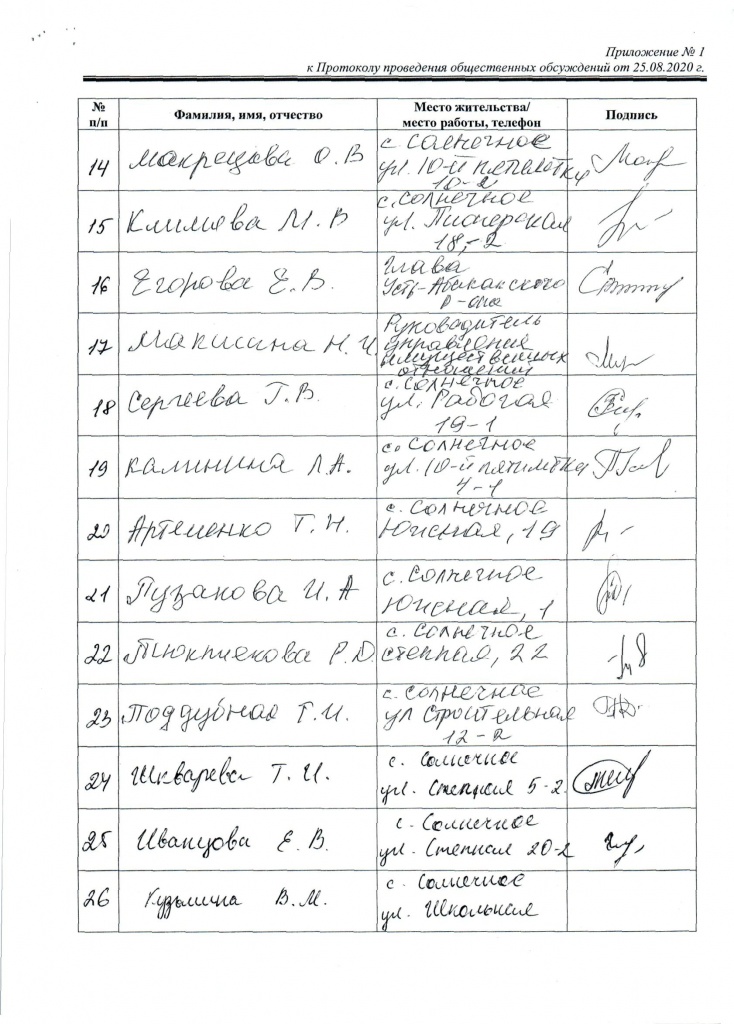 Приложение № 1
к Протоколу проведения общественных обсуждений от 25.08.2020 г.
№ п/п
Фамилия, имя, отчество
Место жительства/
место работы, телефон
Подпись
14 Макрецова О. В
с Солнечное
ул. 10-й пятилетки
10-2
15 Климова М. В
с. Солнечное
ул. Пионерская
18,-2
16 Егорова Е. В.
Глава
Усть-Абаканского
р-она
17 Макисина Н. И.
Руководитель
управления
имущественных
отношений
18 Сергеева Г. В.
с. Солнечное
ул. Рабочая
19-1
19 Калинина Л. А.
с. Солнечное
ул. 10-й пятилетки
4-1
20 Артеменко Т. Н.
с. Солнечное
Южная, 19
21 Пузакова И. А
с. Солнечное
Южная, 1
22 Тюкпиекова Р. Д.
с. Солнечное
Степная, 22
23 Поддубная Г. И.
с. Солнечное
ул Строительная
12-2
24 Шкварева Т. И.
с. Солнечное
ул. Степная 5-2.
25 Иванцова Е. В.
с. Солнечное
ул. Степная 20-2
26 Кузьмина В. М.
с. Солнечное
ул. Школьная